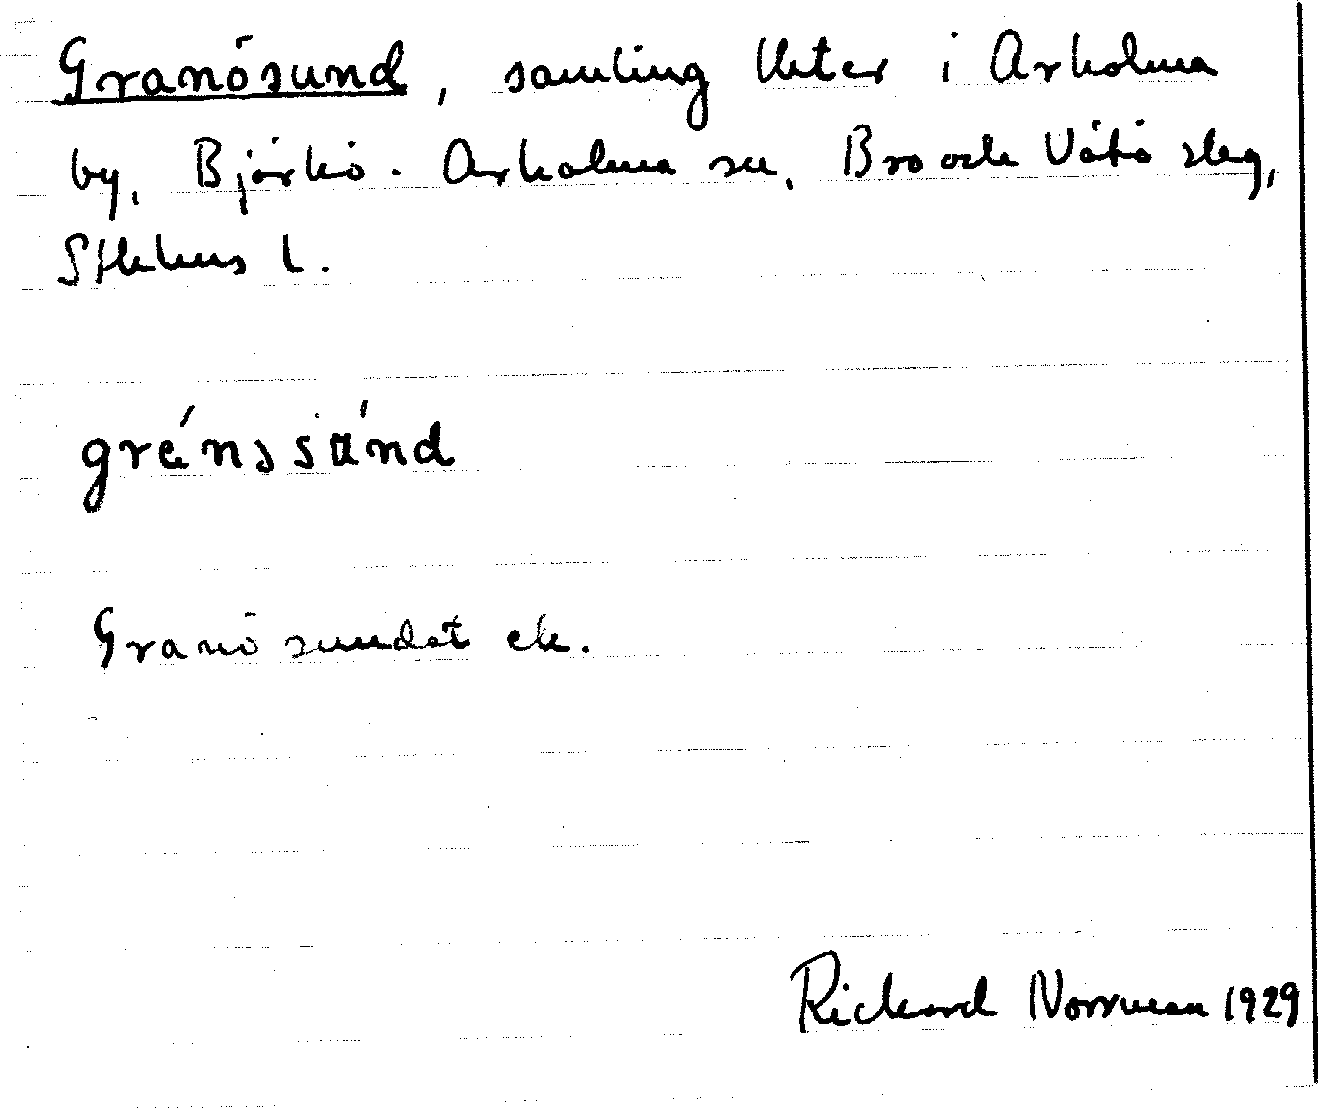 Granösund, samling lhter i Arholma
by, Björkö-Arholma sn, Bro och Vätö slag,
Sthlms l.
gránssúnd
Granösundet ek.
Rickard Norrman 1929